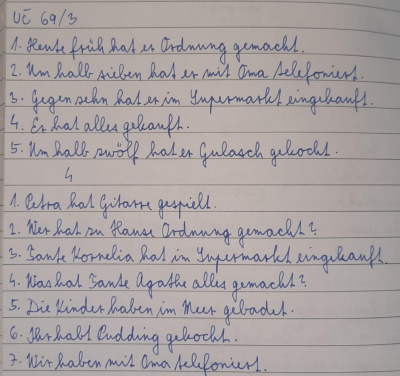 UČ 69/3
1. Heute früh hat er Ordnung gemacht.
2. Um halb sieben hat er mit Oma telefoniert.
3. Gegen zehn hat er im Supermarkt eingekauft.
4. Er hat alles gekauft.
5. Um halb zwölf hat er Gulasch gekocht.
4
1. Petra hat Gitarre gespielt.
2. Wer hat zu Hause Ordnung gemacht?
3. Tante Kornelia hat im Supermarkt eingekauft.
4. Was hat Tante Agathe alles gemacht?
5. Die Kinder haben im Meer gebadet.
6. Ihr habt Pudding gekocht.
7. Wir haben mit Oma telefoniert.